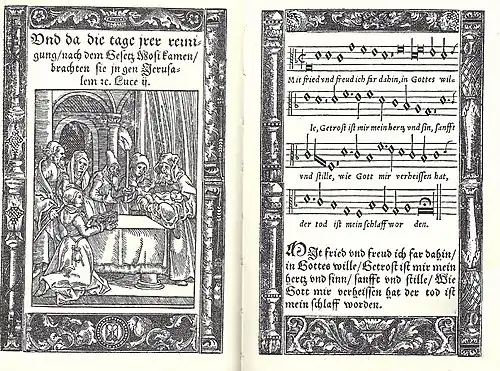 Vnd da die tage jrer reini-
gung/nach dem Gesetz Mosi kamen/
brachten sie jn gen Jerusa-
lem ꝛc. Luce ij.
Mit fried vnd freud ich far dahin, in Gottes wil-
le, Getrost ist mir mein hertz vnd sin, sanfft
vnd stille, wie Gott mir verheissen hat,
der tod ist mein schlaff wor den.
MJt fried vnd freud ich far dahin/
in Gottes wille/Getrost ist mir mein
hertz vnd sinn/ sanfft vnd stille/ Wie
Gott mir verheissen hat der tod ist
mein schlaff worden.